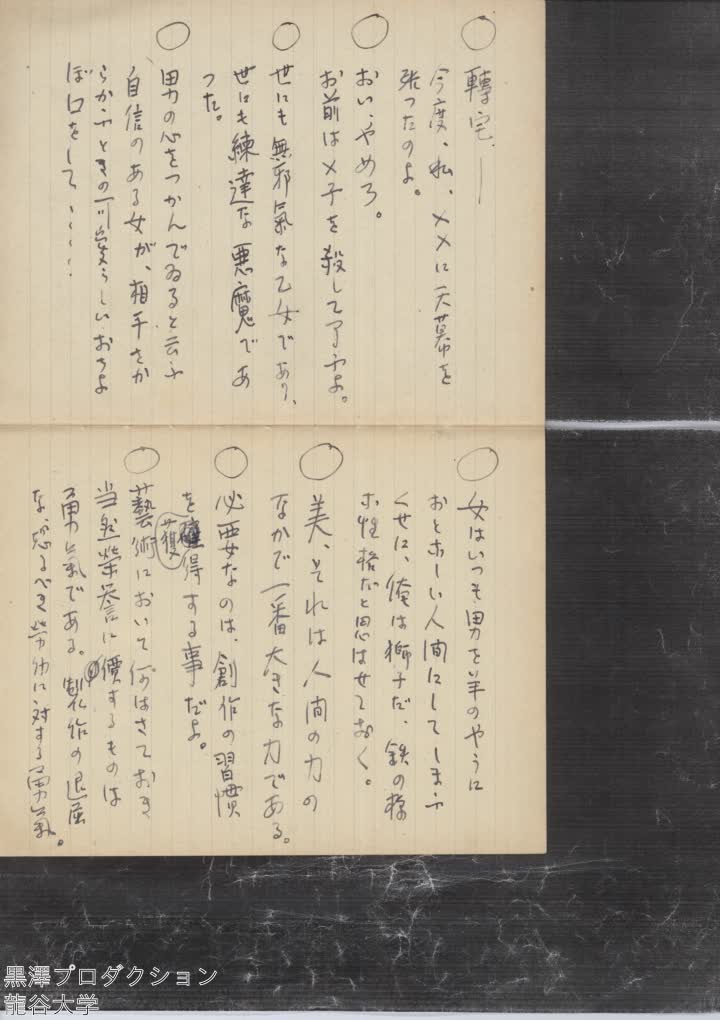 ○ 轉宅、―
今度、私、××に天幕を
張つたのよ。
○ おい、やめろ。
お前は×子を殺して了ふよ。
○ 世にも無邪氣な乙女であり、
世にも練達な悪魔であ
つた。
○ 男の心をつかんでゐると云ふ
自信のある女が、相手をか
らかふときの可愛らしいおちよ
ぼ口をして、、、、、
○ 女はいつも男を羊のやうに
おとなしい人間にしてしまふ
くせに、俺は獅子だ、鉄の様
な性格だと思はせておく。
○ 美、それは人間の力の
なかで一番大きな力である。
○ 必要なのは、創作の習慣
を獲得する事だよ。
○ 藝術において何はさておき
当然栄誉に價するものは
勇氣である。製作の退屈
な、恐るべき労力に対する勇氣。
黒澤プロダクション
龍谷大学